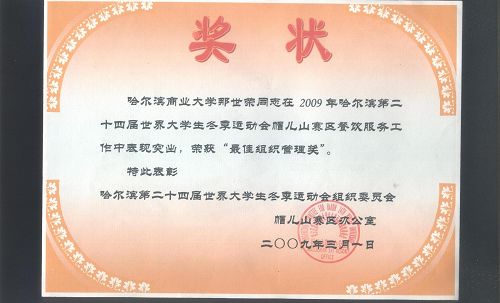 奖状
哈尔滨商业大学那世荣同志在2009年哈尔滨第二
十四届世界大学生冬季运动会帽儿山赛区餐饮服务工
作中表现突出，荣获“最佳组织管理奖”。
特此表彰
哈尔滨第二十四届世界大学生冬季运动会组织委员会
帽儿山赛区办公室
二〇〇九年三月一日